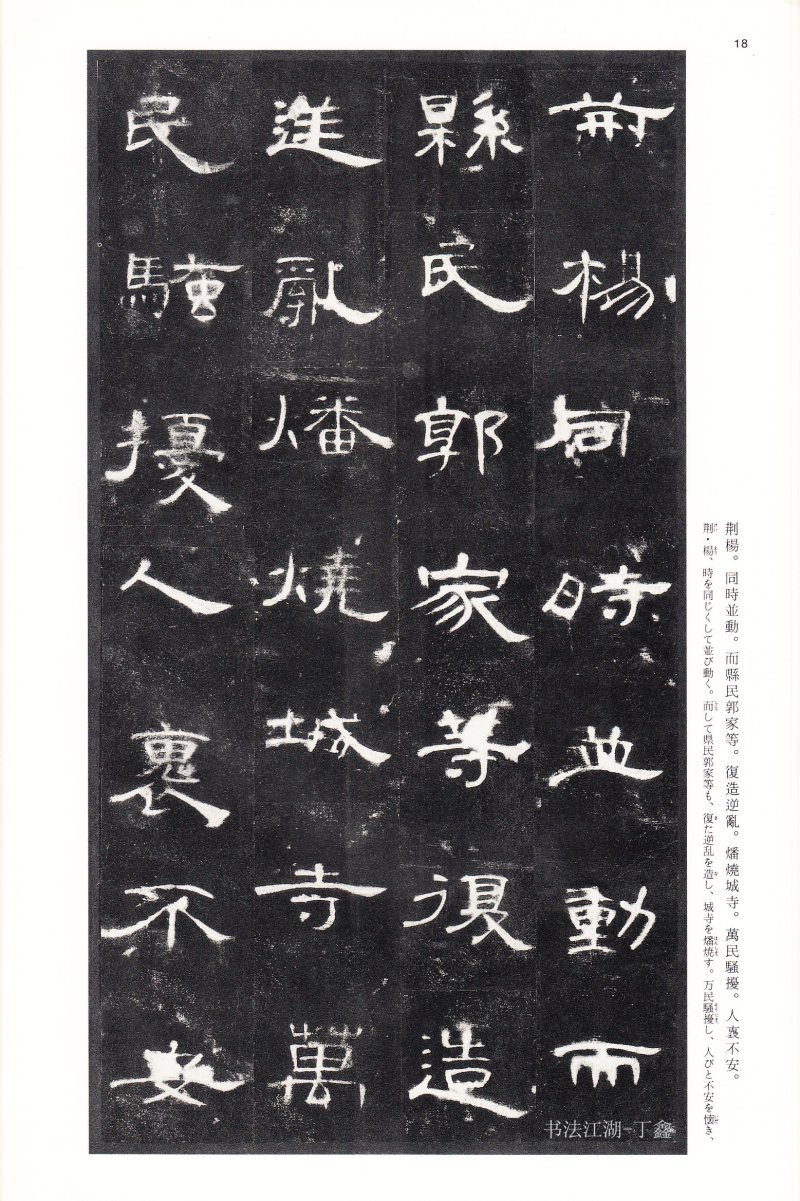 18
荊楊同時並動而
縣民郭家等復造
逆亂燔燒城寺萬
民騷擾人裏不安
荆楊。同時並動。而縣民郭家等。復造逆亂。燔燒城寺。萬民騷擾。人裛不安。
荆・楊、時を同じくして並び動く。而して県民郭家等も、復た逆乱を造し、城寺を燔焼す。万民騷擾し、人びと不安を懐き、
书法江湖-丁鑫